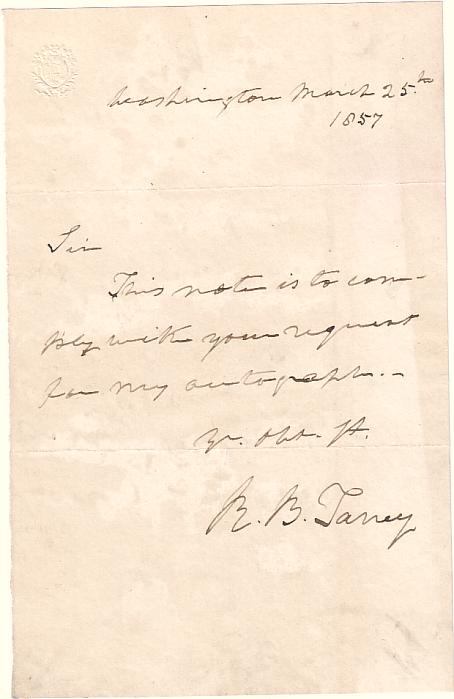 Washington March 25.th
1857
Sir
This note is to com-
ply with your request
for my autograph.-
Yr. Obt. St.
R. B. Taney